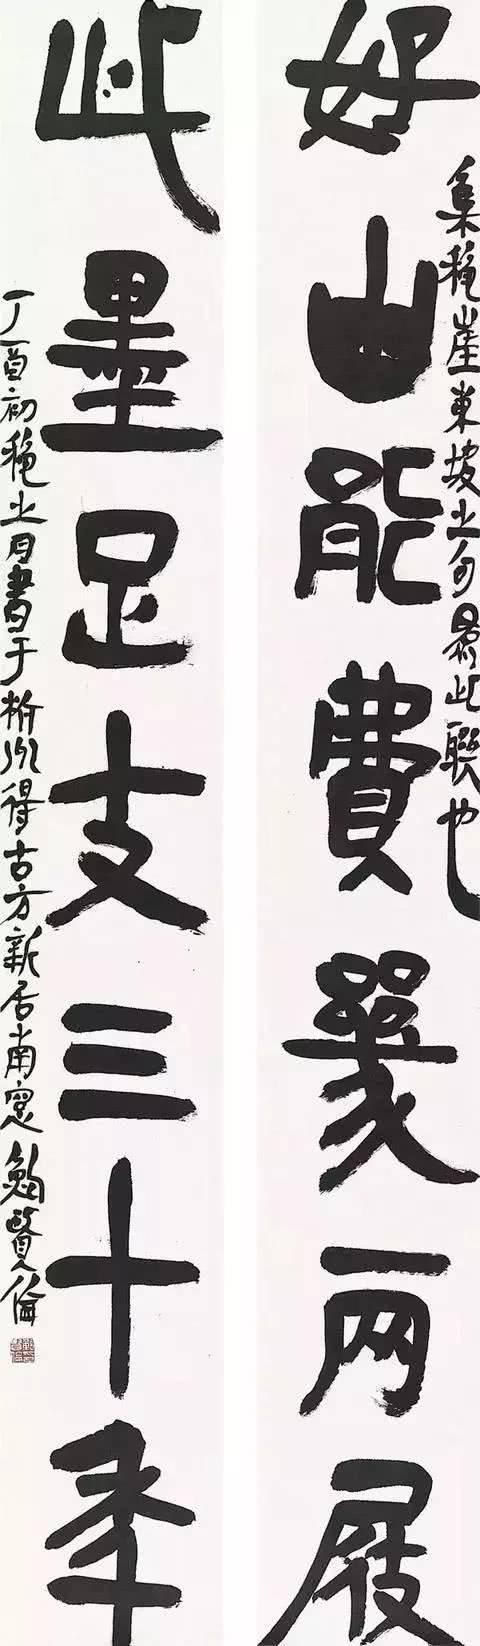 好山能費幾兩屐
集穐崖東坡之句爲此聯也
此墨足支三十年
丁酉初穐之月書于杭州得古方新居南窗 鮑賢倫